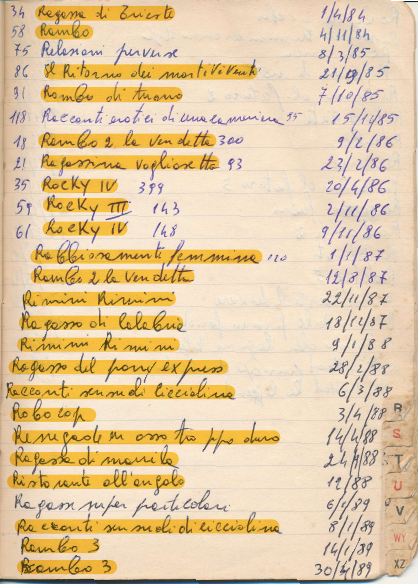 34 Ragassa di Trieste 1/4/84
58 Rambo 4/11/84
75 Relasioni perverse 8/3/85
86 Il Ritorno dei morti Viventi 21/9/85
91 Rombo di tuono 7/10/85
118 Racconti erotici di una cameriera 95 15/11/85
18 Rambo 2 la vendetta 300 9/2/86
21 Ragassina vogliosetta 93 23/2/86
35 Rocky IV 399 20/4/86
59 Rocky III 143 2/11/86
61 Rocky IV 148 9/11/86
Rabbiosamente femmina 120 1/1/87
Rambo 2 la vendetta 12/8/87
Rimini Rimini 22/11/87
Ragasso di Calabria 18/12/87
Rimini Rimini 9/1/88
Ragasso del pony express 28/2/88
Racconti sensuali cicciolina 6/3/88
Robocop 3/4/88
Renegade un osso troppo duro 14/4/88
Ragassa di 88
Ristorante all'angolo 88
Ragasse super particolari 6/1/89
Racconti sensuali di cicciolina 8/1/89
Rambo 3 14/1/89
Rambo 3 30/4/89
R
S
T
U
V
WY
XZ